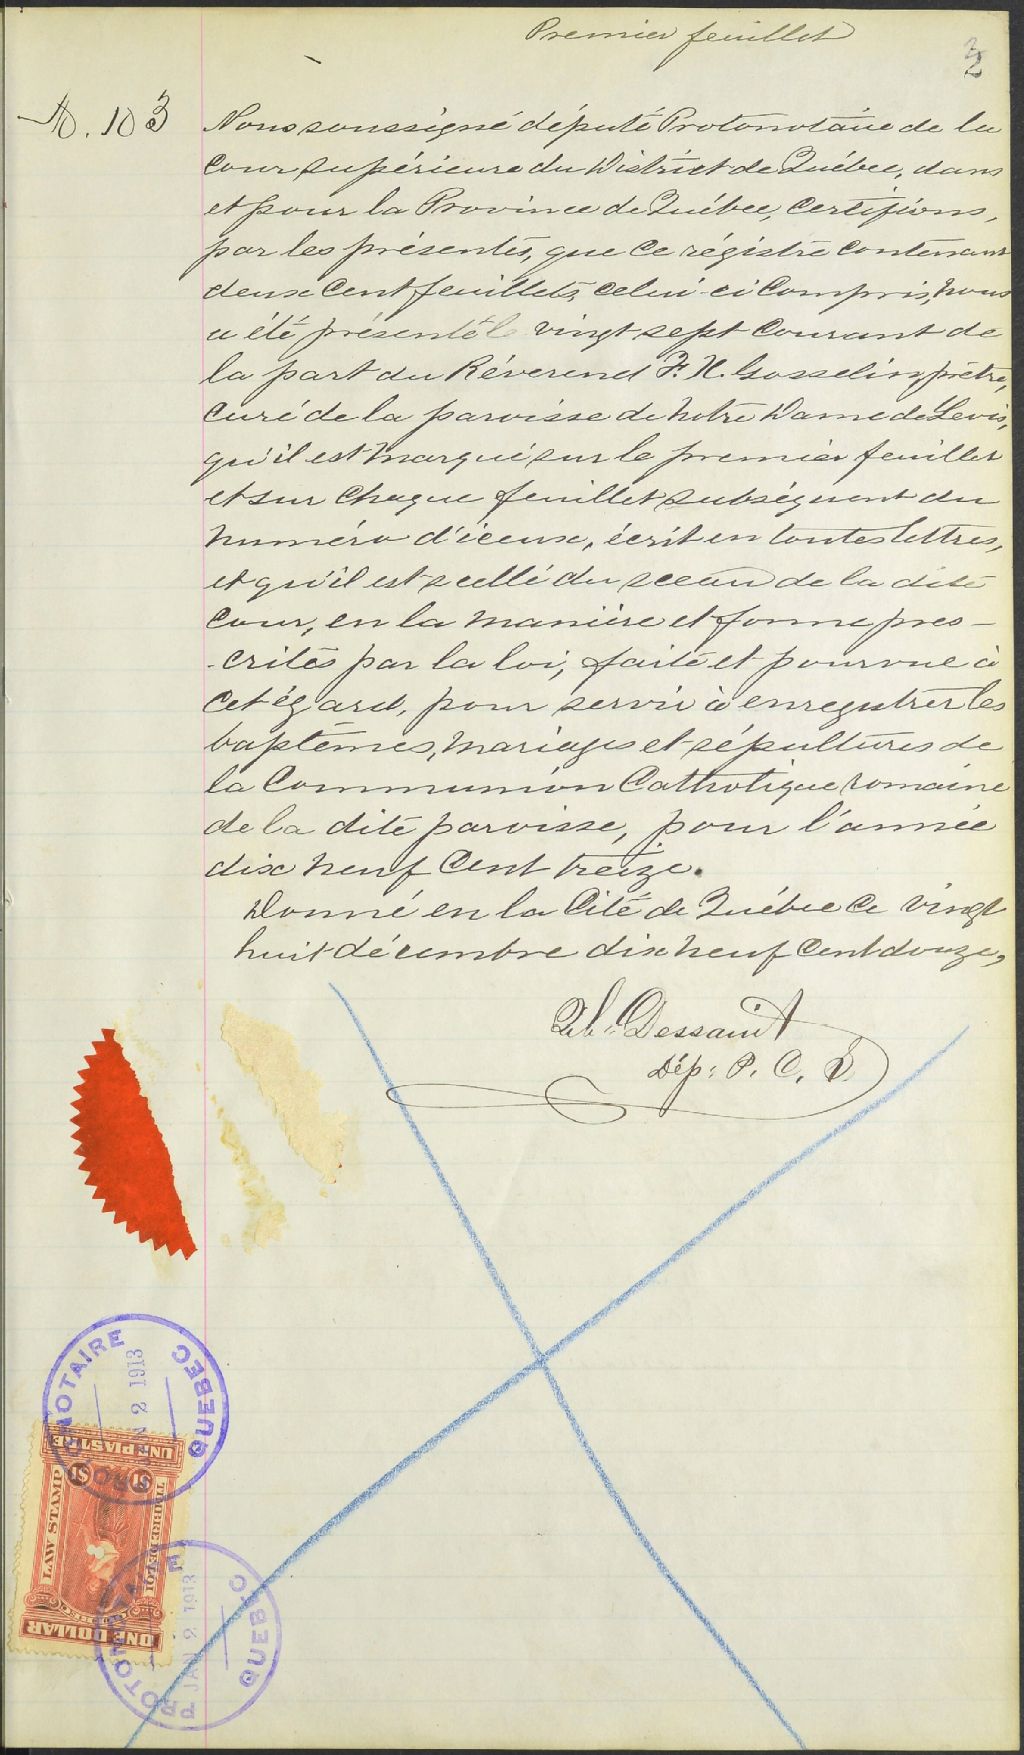 Premier feuillet
2
No. 103
Nous soussigné député Protonotaire de la
Cour supérieure du District de Québec, dans
et pour la Province de Québec, Certifions,
par les présentes, que ce régistre contenant
deux Cent feuillets, celui-ci Compris, nous
a été présenté le vingt sept Courant de
la part du Révérend F. X. Gosselin, prêtre,
Curé de la paroisse de Notre Dame de Levis,
qu'il est marqué sur le premier feuillet
et sur Chaque feuillet subséquent du
Numéro d'iceux, écrit en toutes lettres,
et qu'il est scellé du sceau de la dite
Cour, en la manière et forme pres-
-crites par la loi, faite et pourvue à
Cet égard, pour servir à enregistrer les
baptêmes, mariages et sépultures de
la Communion Catholique romaine
de la dite paroisse, pour l'année
dix neuf Cent treize.
Donné en la Cité de Québec Ce vingt
huit décembre dix neuf Cent douze,
Dessaint
Dép: P. C. S.
PROTONOTAIRE
JAN 2 1913
QUEBEC
UNE PIASTRE
$1 $1
LAW STAMP
TIMBRE DE LOI
QUEBEC
ONE DOLLAR
PROTONOTAIRE
JAN 2 1913
QUEBEC